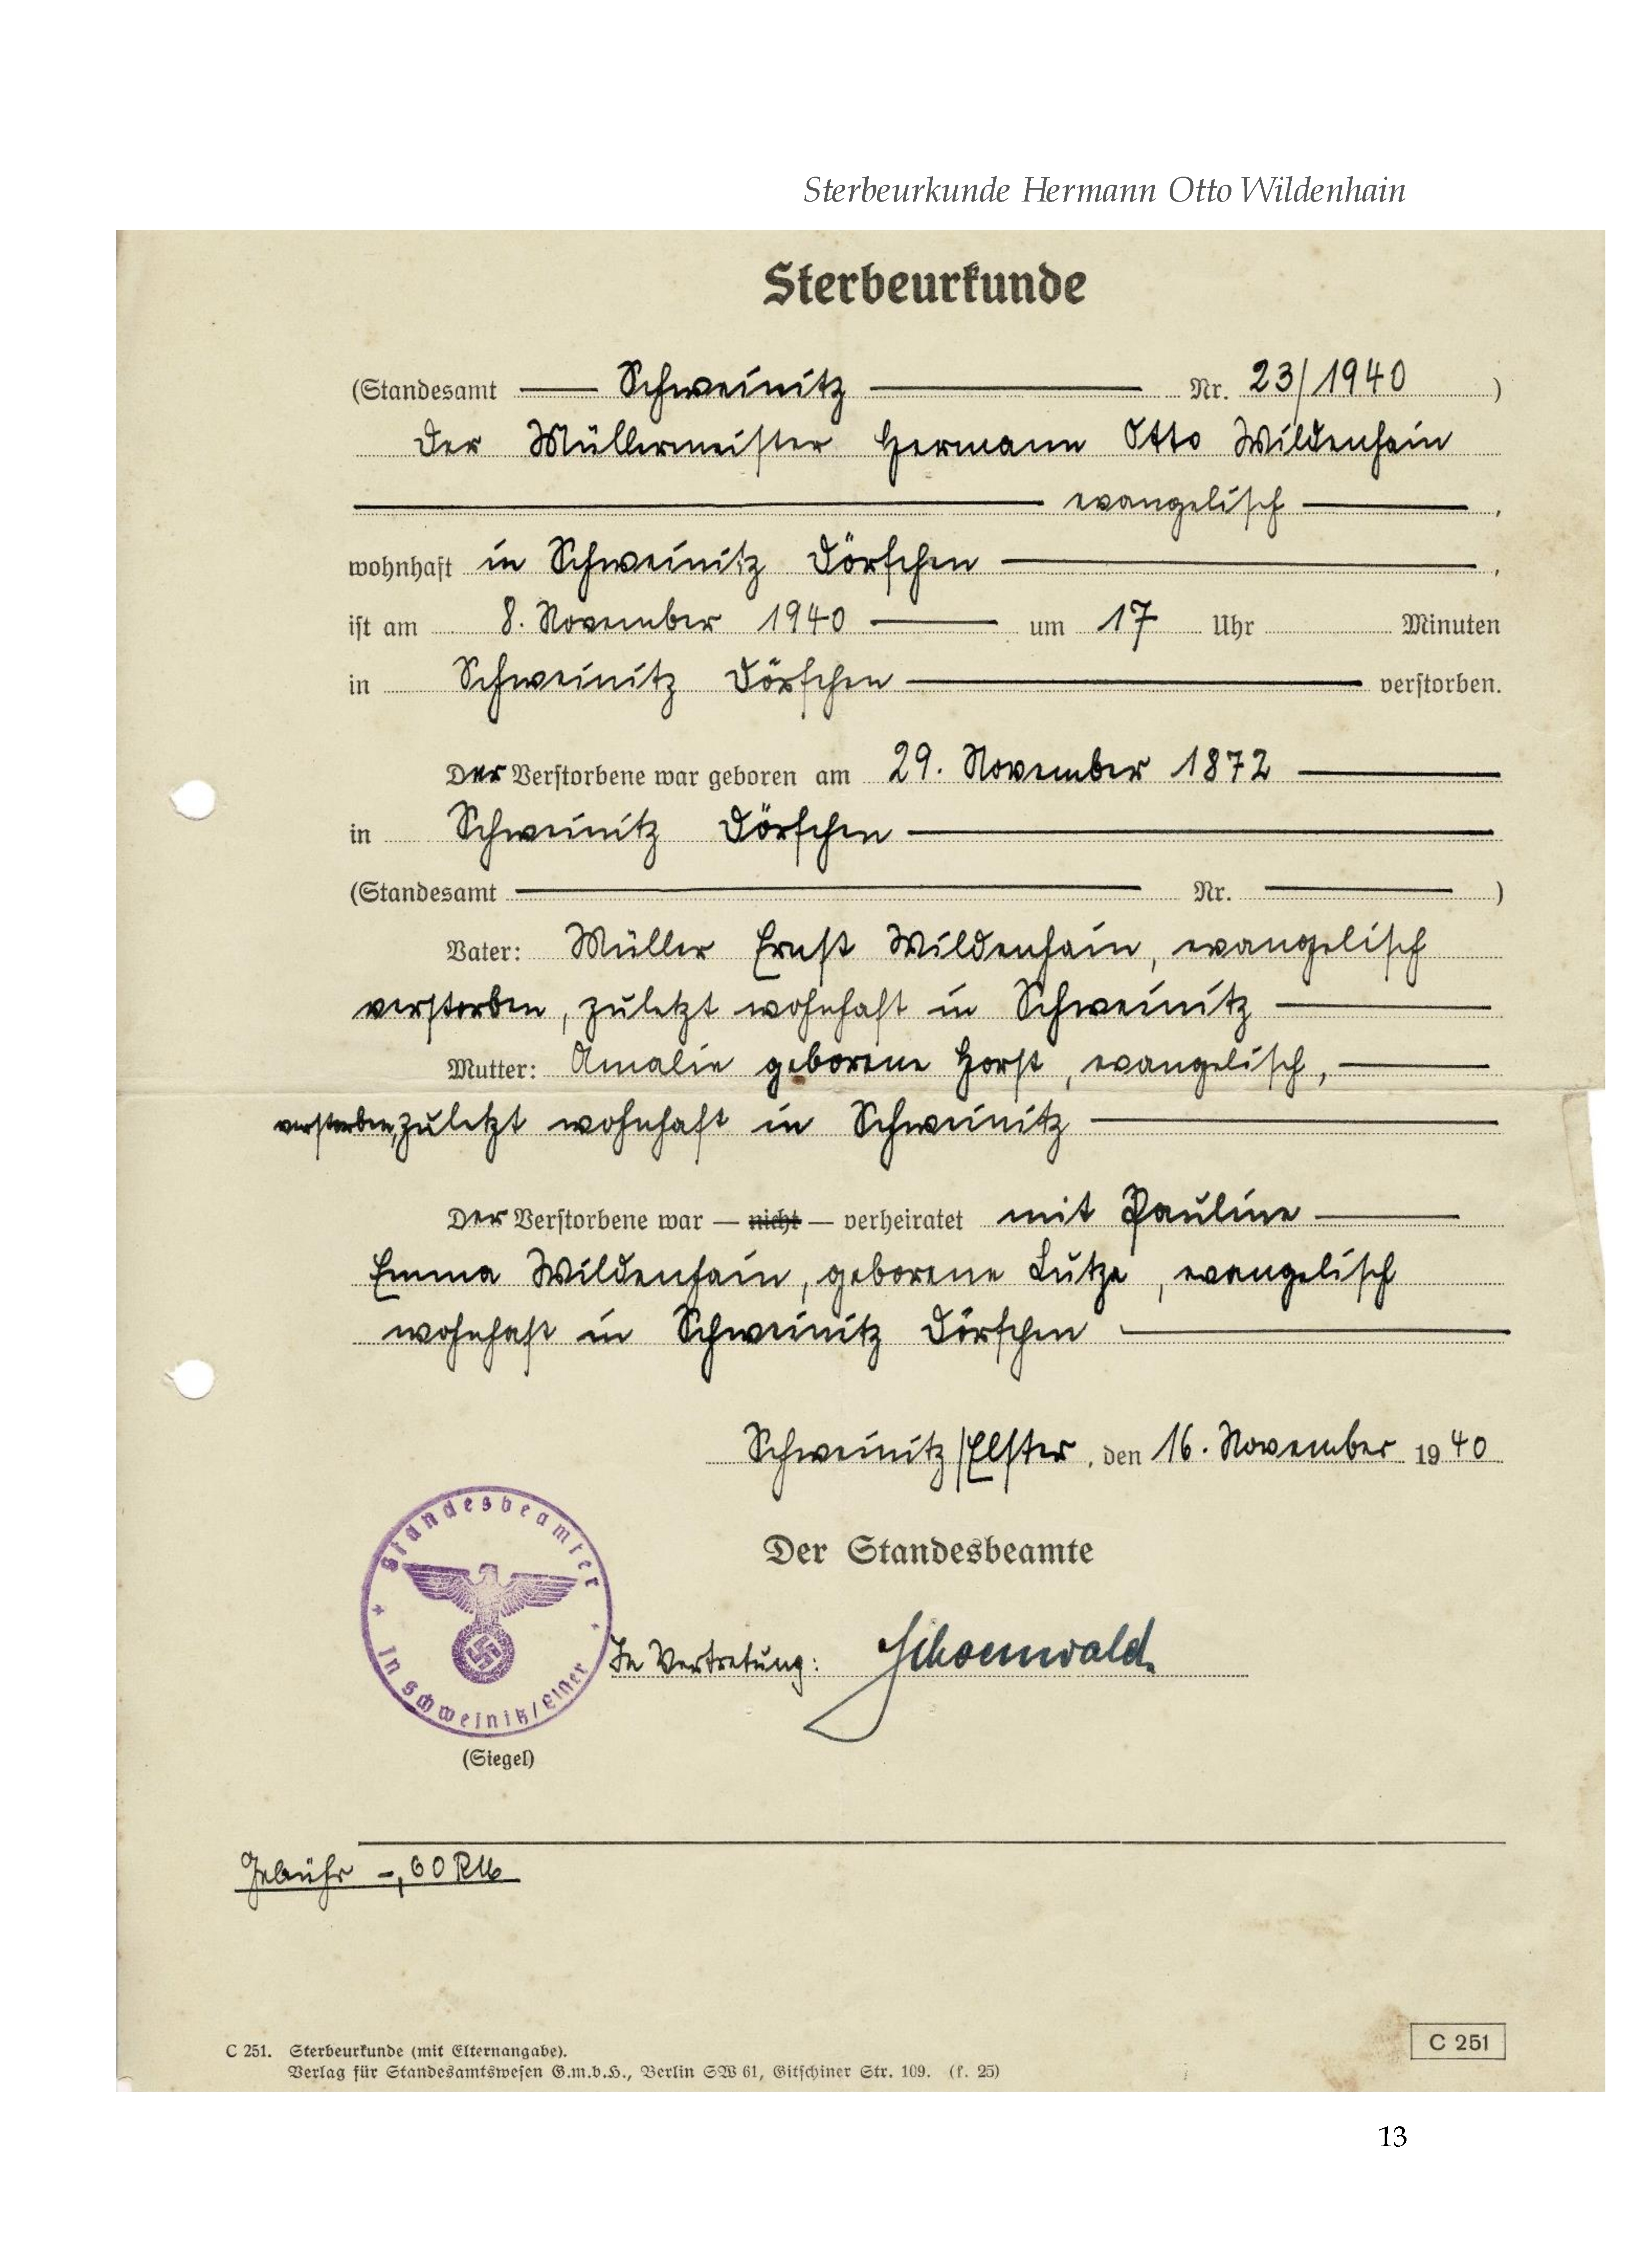 Sterbeurkunde Hermann Otto Wildenhain
Sterbeurkunde
(Standesamt Schweinitz Nr. 23/1940 )
Der Müllermeister Hermann Otto Wildenhain
evangelisch ,
wohnhaft in Schweinitz Dörfchen ,
ist am 8. November 1940 um 17 Uhr Minuten
in Schweinitz Dörfchen verstorben.
Der Verstorbene war geboren am 29. November 1872
in Schweinitz Dörfchen
(Standesamt Nr. )
Vater: Müller Ernst Wildenhain, evangelisch
verstorben, zuletzt wohnhaft in Schweinitz
Mutter: Amalie geborene Horst, evangelisch,
verstorben, zuletzt wohnhaft in Schweinitz
Der Verstorbene war — nicht — verheiratet mit Pauline
Emma Wildenhain, geborene Lutze, evangelisch
wohnhaft in Schweinitz Dörfchen
Schweinitz/Elster, den 16. November 1940
Der Standesbeamte
Standesbeamter
In Schweinitz/Elster
In Vertretung: Schoenwald.
(Siegel)
Gebühr -,60 RM
C 251. Sterbeurkunde (mit Elternangabe).
C 251
Verlag für Standesamtswesen G.m.b.H., Berlin SW 61, Gitschiner Str. 109. (f. 25)
13